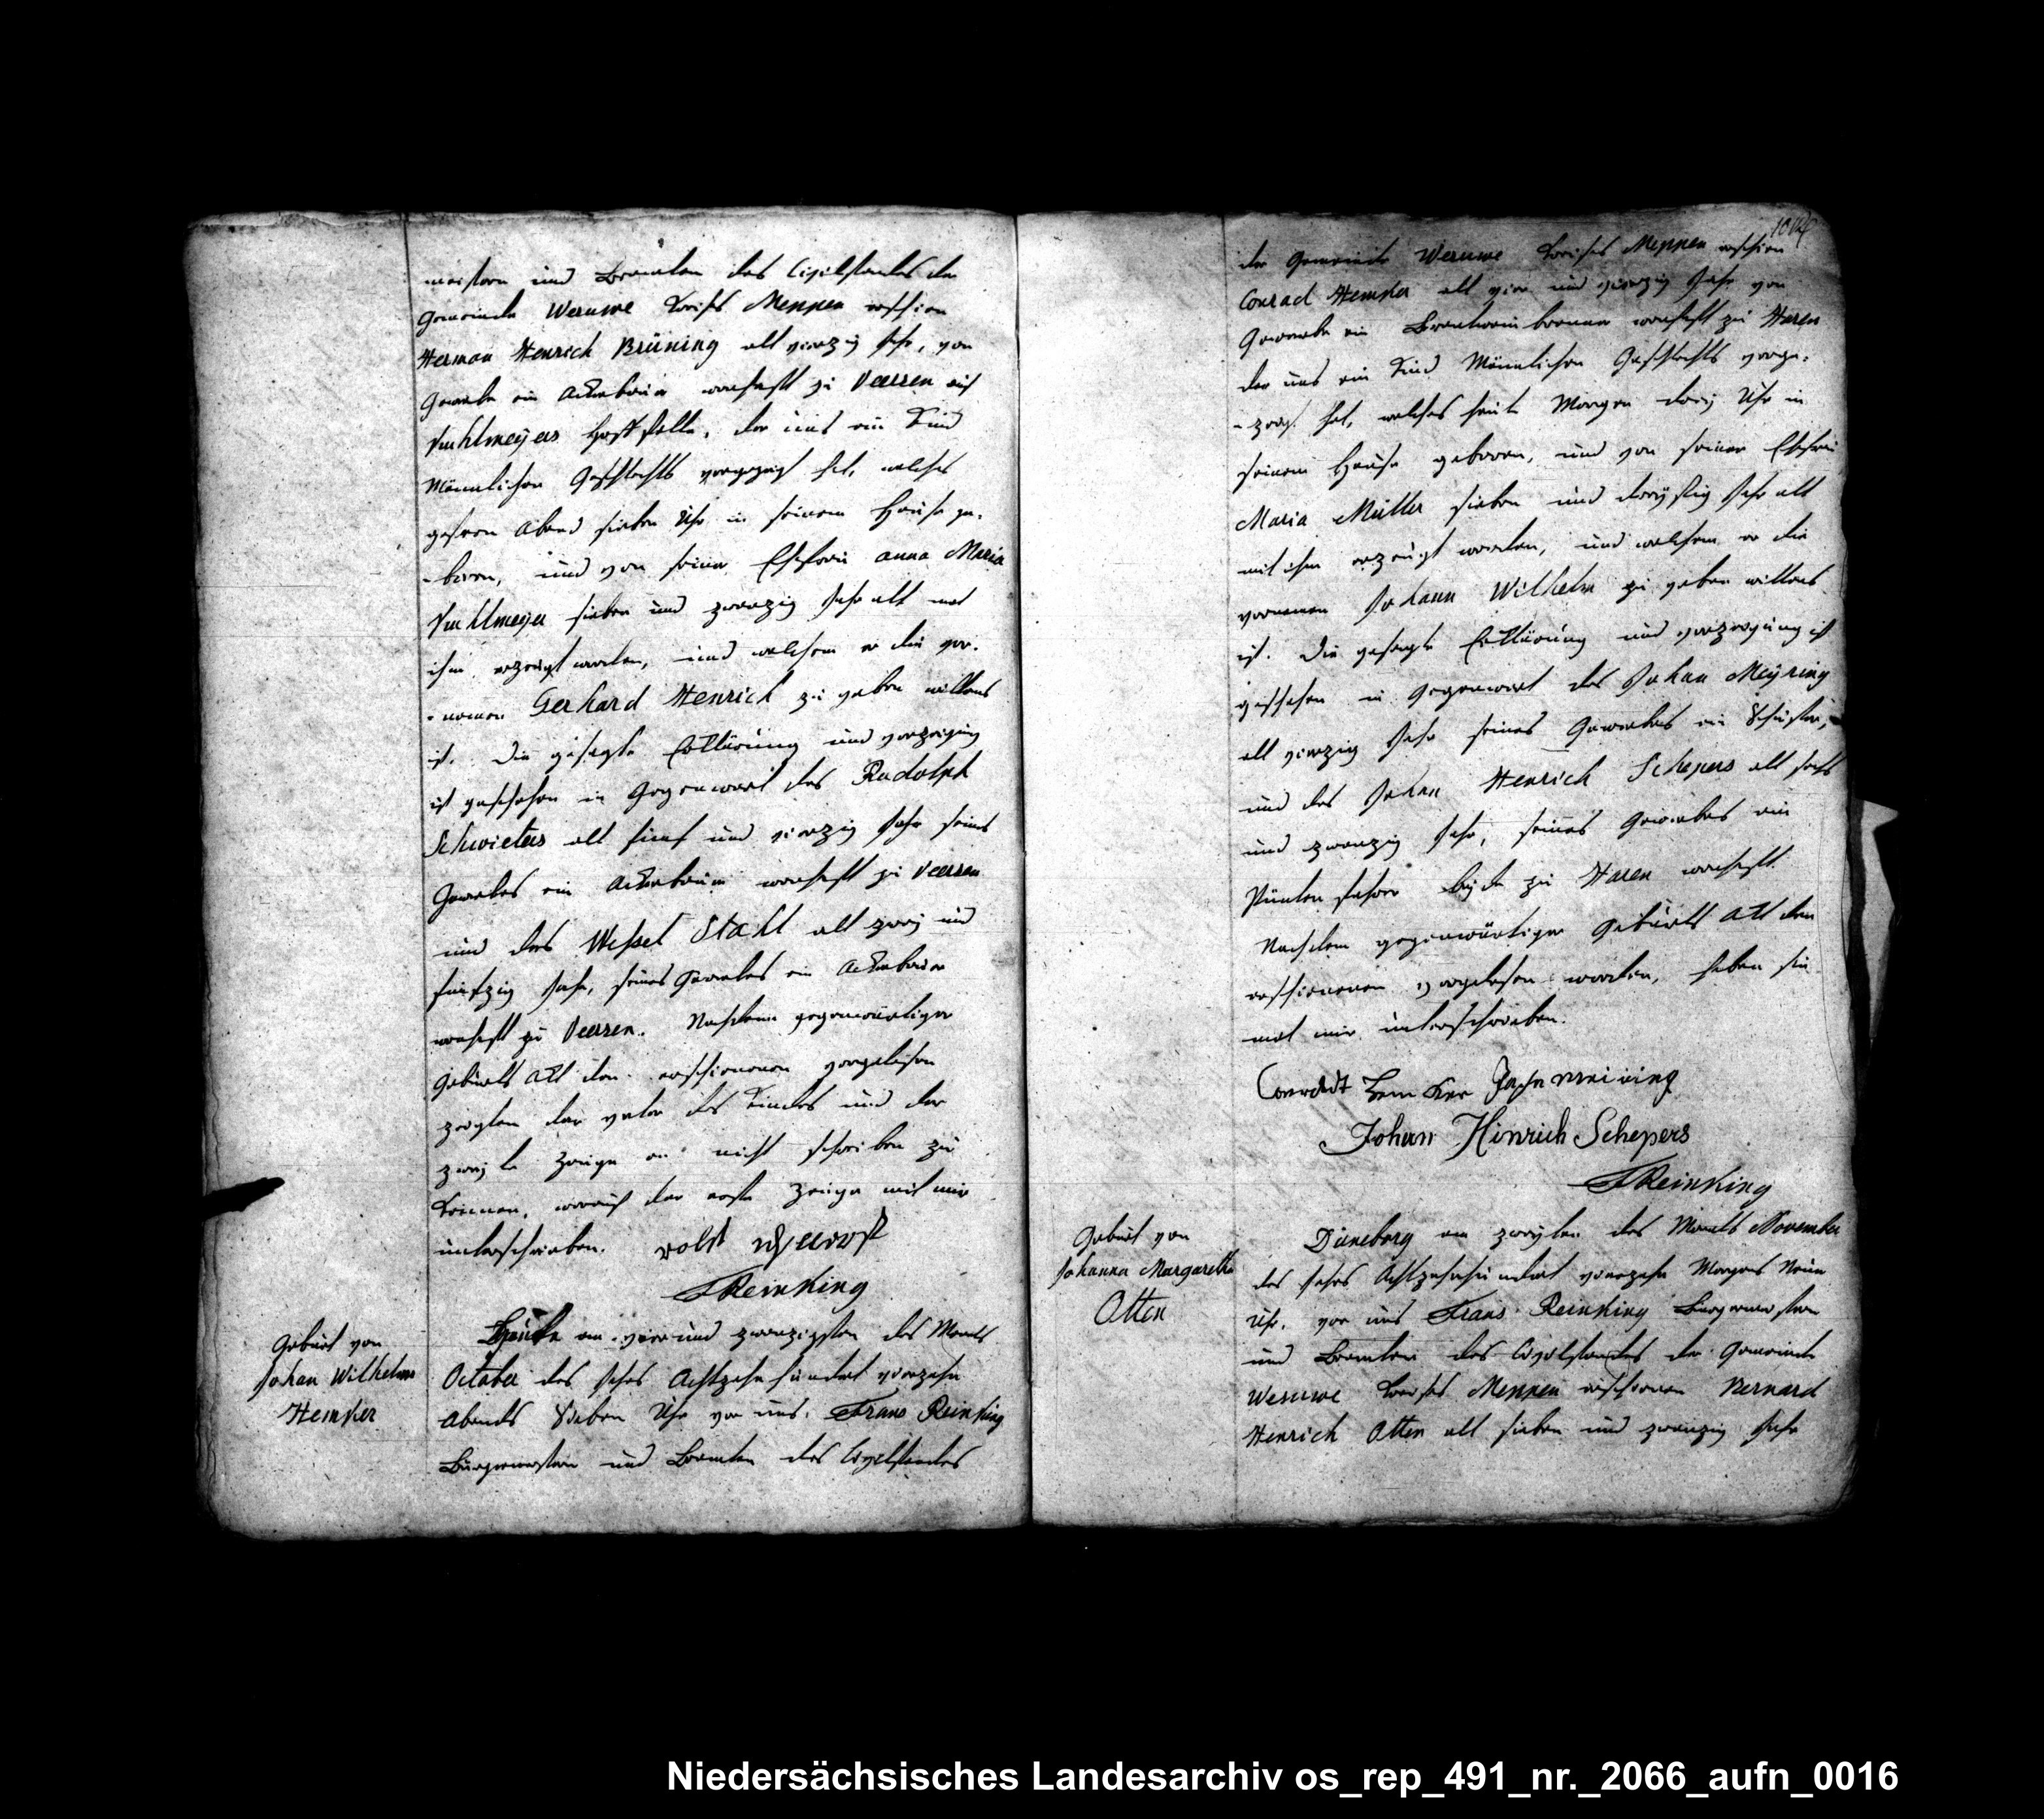 meistern und Beamten des Civilstandes der
Gemeinde Wesuwe Kreises Meppen erschien
Herman Henrich Brüning alt vierzig Jahr, von
Gewerbe ein Ackerbauer wonhaft zu Veersen auf
hoffstelle, der uns ein Kind
Mänlichen Geschlechts vorgezeigt hat, welches
gestern Abend sieben Uhr in seinem Hause ge-
-boren, und von seiner Ehefrau anna Maria
sieben und zwanzig Jahr alt mit
ihm erzeugt worden, und welchem er die vor-
-namen Gerhard Henrich zu geben willens
ist. Die gesagte Erklärung und vorzeigung
ist geschehen in Gegenwart des Rudolph
Schwieters alt fünf und vierzig Jahr seines
Gewerbes ein Ackerbauer wonhaft zu Veersen
und des Wessel Stahl alt zwey und
fünfzig Jahr, seines Gewerbes ein Ackerbauer
wonhaft zu Veersen. Nachdem gegenwärtiger
Geburts Act den erschienenen vorgelesen
zeigten der vater des Kindes und der
zweyte Zeuge an nicht schreiben zu
können, worauf der erste Zeuge mit mir
unterschrieben.
FReinking
Geburt von
Johan Wilhelm
Hemker
Heute am vier und zwanzigsten des Monats
October des Jahrs Achtzehnhundert vierzehn
Abends Sieben Uhr vor uns. Frans Reinking
Bürgermeistern und Beamten des Civilstandes
der Gemeinde Wesuwe Kreises Meppen erschien
Conrad Hemker alt vier und vierzig Jahr von
Gewerbe ein Brantweinbrenner wonhaft zu Haren
der uns ein Kind Mänlichen Geschlechts vorge-
-zeigt hat, welches heute Morgen drey Uhr in
seinem Hause geboren, und von seiner Ehefrau
Maria Müller sieben und dreyssig Jahr alt
mit ihm erzeugt worden, und welchem er die
vornamen Johann Wilhelm zu geben willens
ist. Die gesagte Erklärung und vorzeigung ist
geschehen in Gegenwart des Johan Meyring
alt vierzig Jahr seines Gewerbes ein Schuster,
und des Johan Henrich Schepers alt sechs
und zwanzig Jahr, seines Gewerbes ein
Püntenfahrer beyde zu Haren wonhaft.
Nachdem gegenwärtiger Geburts Act den
erschienenen vorgelesen worden, haben sie
mit mir unterschrieben.
Conradt Hemker Johan meiring
Johan Hinrich Schepers
FReinking
Geburt von
Johanna Margaretha
Otten
Düneborg am zweyten des Monats November
des Jahrs Achtzehnhundert vierzehn Morgens Neun
Uhr, vor uns Frans Reinking Bürgermeistern
und Beamten des Civilstandes der Gemeinde
Wesuwe Kreises Meppen erschienen Bernard
Henrich Otten alt sieben und zwanzig Jahr
Niedersächsisches Landesarchiv os_rep_491_nr._2066_aufn_0016